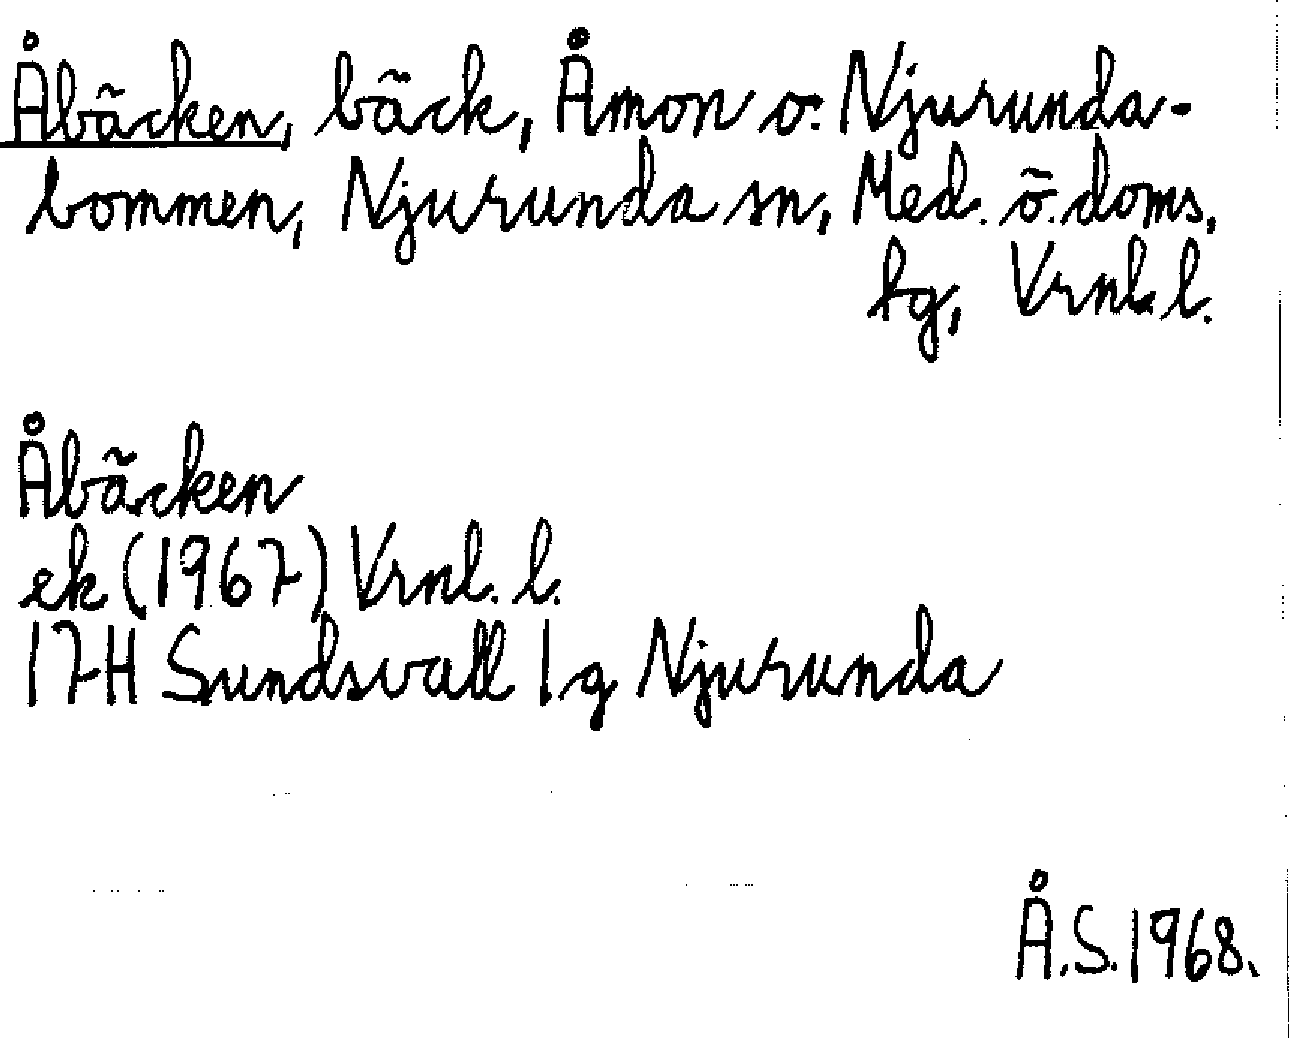 Åbäcken, bäck, Åmon o. Njurunda-
bommen, Njurunda sn, Med. ö. doms,
lg, Vrnl. l.
Åbäcken
ek (1967) Vrnl. l.
17H Sundsvall 1g Njurunda
Å.S. 1968.